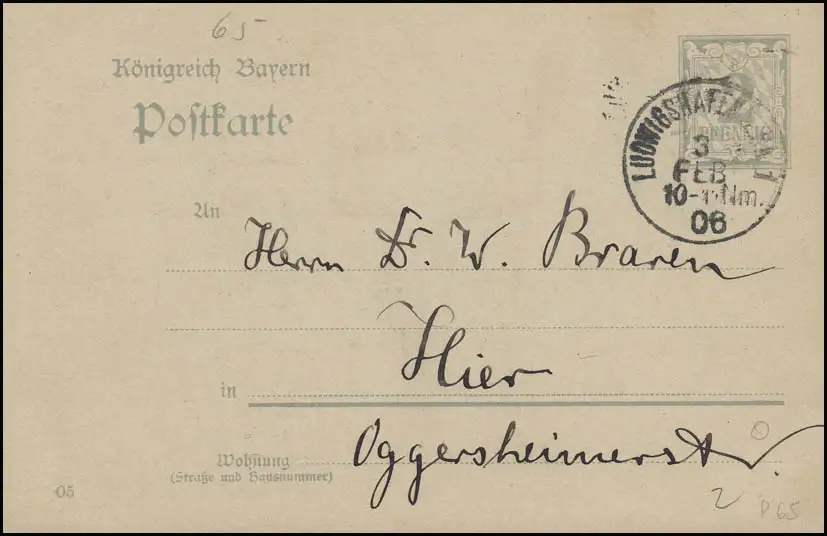 65
Königreich Bayern
Postkarte
PFENNIG
LUDWIGSHAFEN
3
FEB
10-11 Nm.
06
An
Herrn Dr. W. Braren
in
Hier
Wohnung
(Straße und Hausnummer)
Oggersheimerstr.
05
2
P65